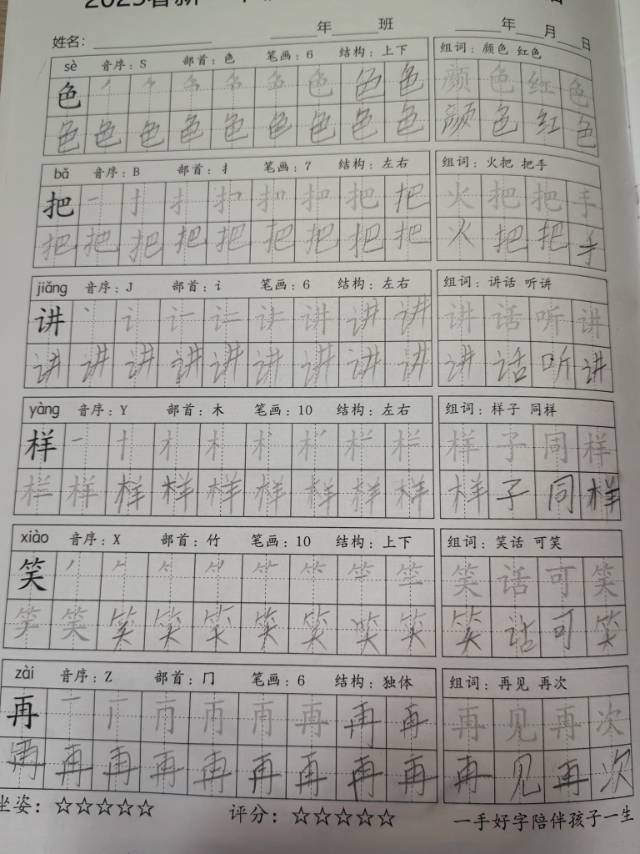 姓名: 年 班 年 月 日
sè 音序: S 部首: 色 笔画: 6 结构: 上下 组词: 颜色 红色
色 色 色 色 颜 色 红 色
色 色 色 色 色 色 色 色 色 颜 色 红 色
bǎ 音序: B 部首: 扌 笔画: 7 结构: 左右 组词: 火把 把手
把 把 把 把 火 把 把 手
把 把 把 把 把 把 把 把 把 火 把 把 手
jiǎng 音序: J 部首: 讠 笔画: 6 结构: 左右 组词: 讲话 听讲
讲 讲 讲 讲 讲 话 听 讲
讲 讲 讲 讲 讲 讲 讲 讲 讲 讲 话 听 讲
yàng 音序: Y 部首: 木 笔画: 10 结构: 左右 组词: 样子 同样
样 样 子 同 样
样 样 样 样 样 样 样 样 样 子 同 样
xiào 音序: X 部首: 竹 笔画: 10 结构: 上下 组词: 笑话 可笑
笑 笑 话 可 笑
笑 笑 笑 笑 笑 笑 笑 笑 笑 话 可 笑
zài 音序: Z 部首: 冂 笔画: 6 结构: 独体 组词: 再见 再次
再 再 再 再 再 见 再 次
再 再 再 再 再 再 再 再 再 再 见 再 次
坐姿: ☆☆☆☆☆ 评分: ☆☆☆☆☆ 一手好字陪伴孩子一生